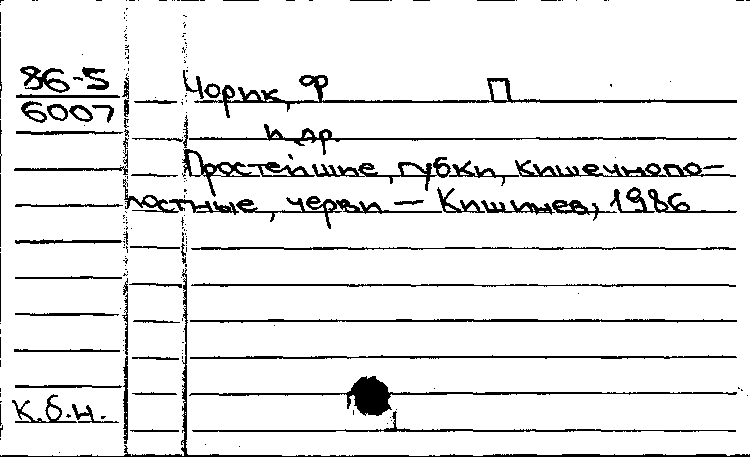 86-5
6007
Чорик, Ф П
и др.
Простейшие, губки, кишечнопо-
лостные, черви — Кишинев, 1986
К.б.н.